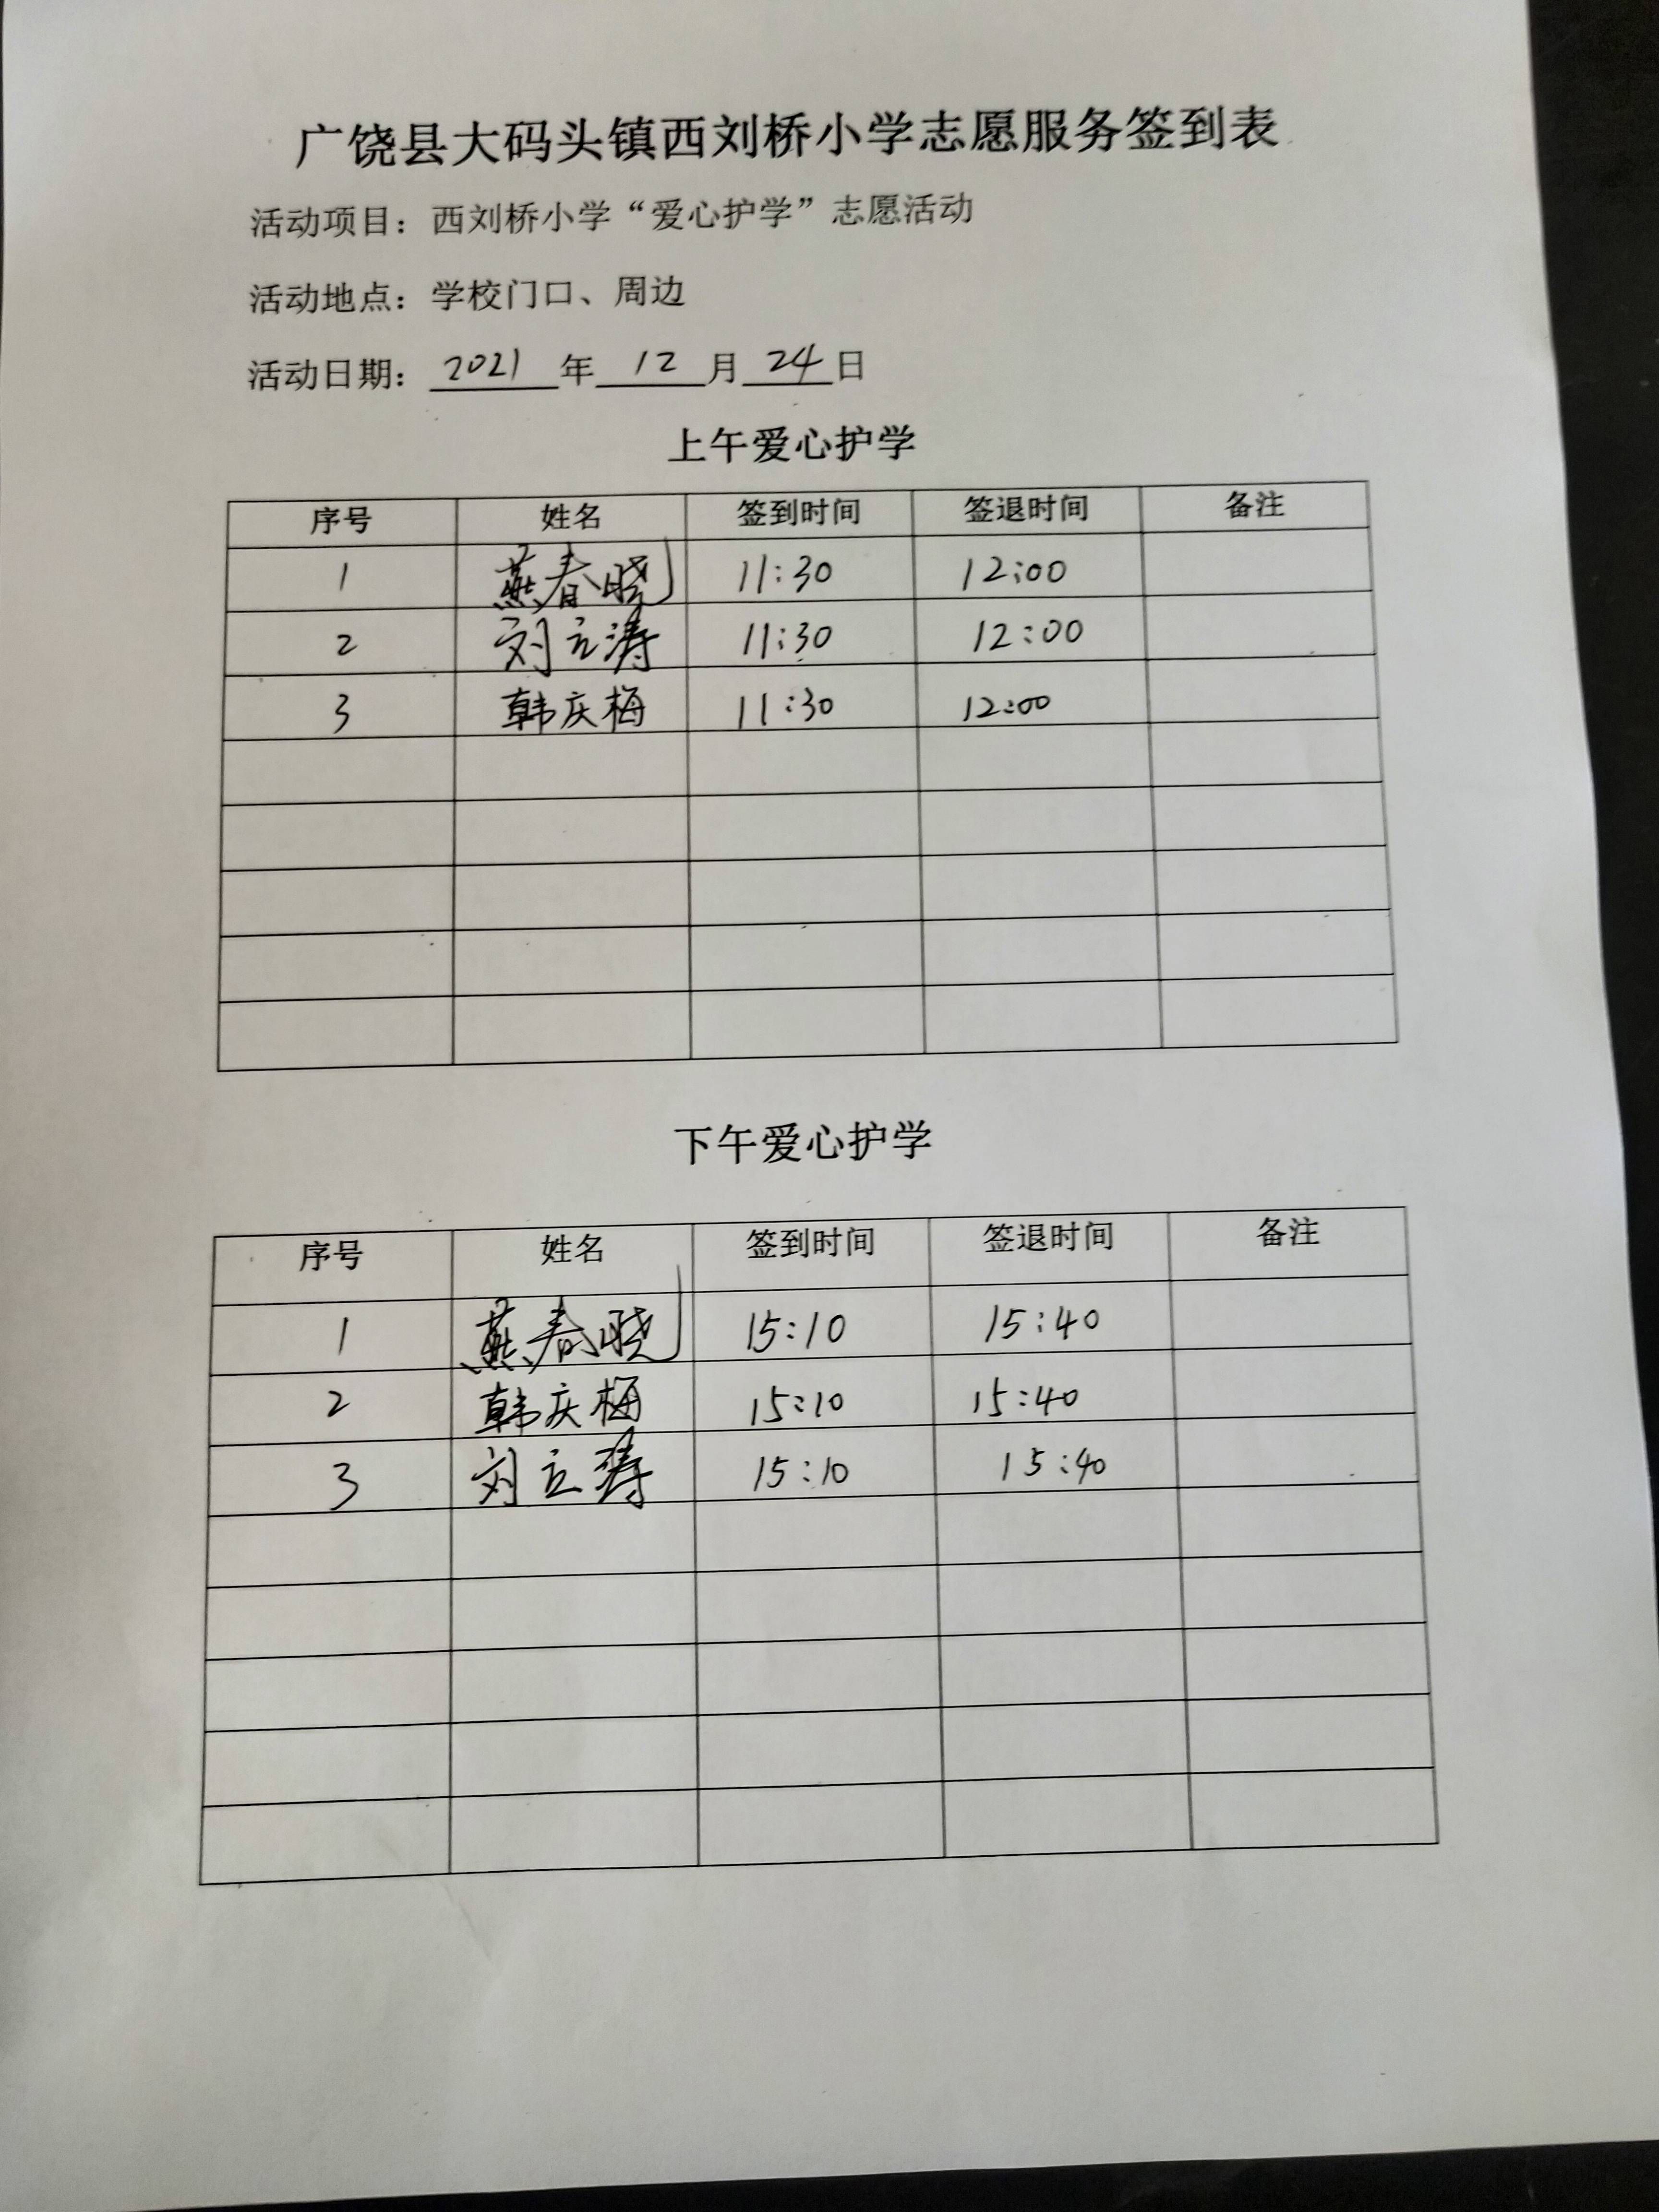 广饶县大码头镇西刘桥小学志愿服务签到表
活动项目：西刘桥小学“爱心护学”志愿活动
活动地点：学校门口、周边
活动日期：2021年12月24日
上午爱心护学
序号 姓名 签到时间 签退时间 备注
1 燕春晓 11:30 12:00
2 刘立涛 11:30 12:00
3 韩庆梅 11:30 12:00
下午爱心护学
序号 姓名 签到时间 签退时间 备注
1 燕春晓 15:10 15:40
2 韩庆梅 15:10 15:40
3 刘立涛 15:10 15:40